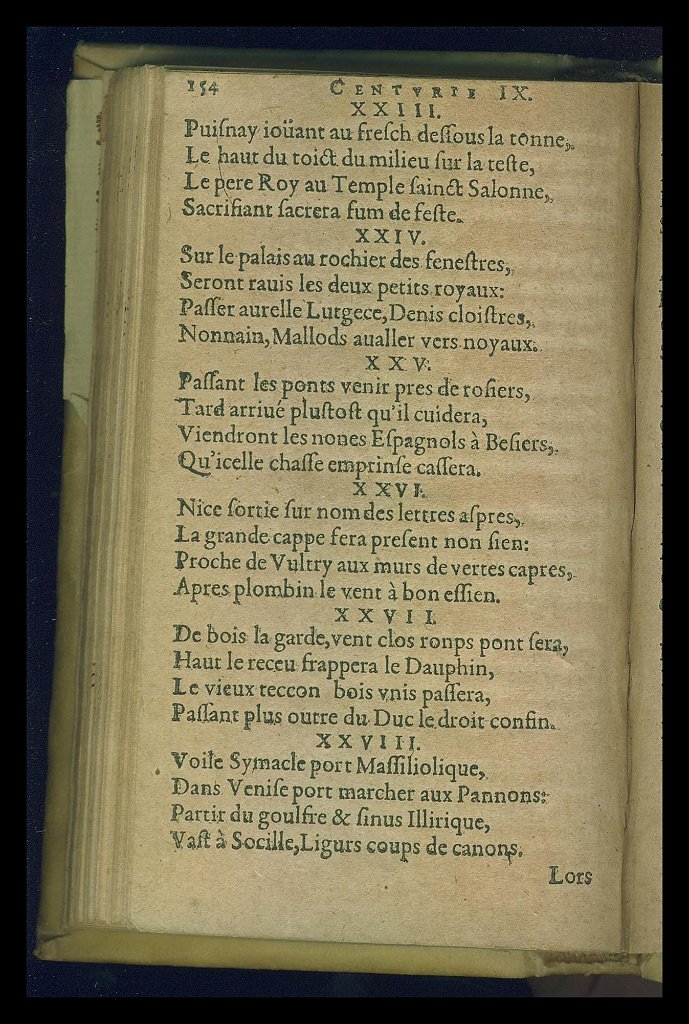 154 CENTVRIE IX.
XXIII.
Puiſnay ioüant au freſch deſſous la tonne,
Le haut du toict du milieu ſur la teſte,
Le pere Roy au Temple ſainct Salonne,
Sacrifiant ſacrera fum de feſte.
XXIV.
Sur le palais au rochier des feneſtres,
Seront rauis les deux petits royaux:
Paſſer aurelle Lutgece, Denis cloiſtres,
Nonnain, Mallods aualler vers noyaux.
XXV.
Paſſant les ponts venir pres de roſiers,
Tard arriué pluſtoſt qu'il cuidera,
Viendront les nones Eſpagnols à Beſiers,
Qu'icelle chaſſe emprinſe caſſera.
XXVI.
Nice ſortie ſur nom des lettres aſpres,
La grande cappe fera preſent non ſien:
Proche de Vultry aux murs de vertes capres,
Apres plombin le vent à bon eſſien.
XXVII.
De bois la garde, vent clos ronps pont ſera,
Haut le receu frappera le Dauphin,
Le vieux teccon bois vnis paſſera,
Paſſant plus outre du Duc le droit confin.
XXVIII.
Voile Symacle port Maſſiliolique,
Dans Veniſe port marcher aux Pannons:
Partir du goulfre & ſinus Illirique,
Vaſt à Socille, Ligurs coups de canons.
Lors